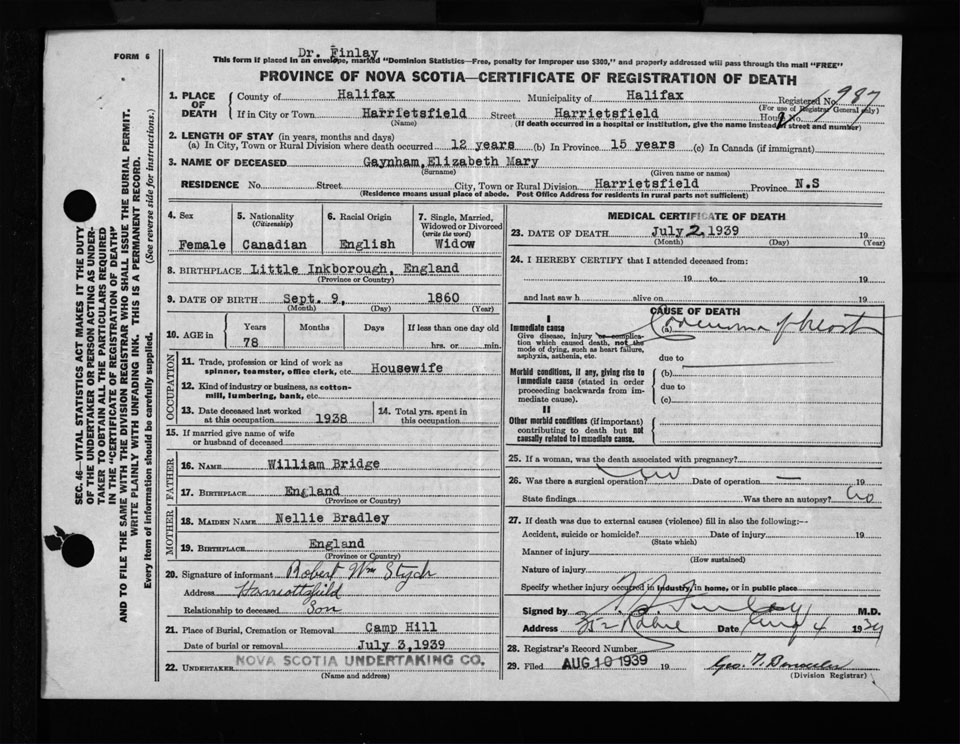 Dr. Finlay
FORM 6
This form if placed in an envelope, marked "Dominion Statistics—Free, penalty for improper use $300," and properly addressed will pass through the mail "FREE"
PROVINCE OF NOVA SCOTIA—CERTIFICATE OF REGISTRATION OF DEATH
SEC. 46—VITAL STATISTICS ACT MAKES IT THE DUTY
OF THE UNDERTAKER OR PERSON ACTING AS UNDER-
TAKER TO OBTAIN ALL THE PARTICULARS REQUIRED
IN THE "CERTIFICATE OF REGISTRATION OF DEATH"
AND TO FILE THE SAME WITH THE DIVISION REGISTRAR WHO SHALL ISSUE THE BURIAL PERMIT.
WRITE PLAINLY WITH UNFADING INK. THIS IS A PERMANENT RECORD.
Every item of information should be carefully supplied. (See reverse side for instructions.)
1. PLACE OF DEATH
County of Halifax Municipality of Halifax Registered No. 987
(For use of Registrar General only)
If in City or Town Harrietsfield Street Harrietsfield House No.
(Name) (If death occurred in a hospital or institution, give the name instead of street and number)
2. LENGTH OF STAY (in years, months and days)
(a) In City, Town or Rural Division where death occurred 12 years (b) In Province 15 years (c) In Canada (if immigrant)
3. NAME OF DECEASED Gaynham, Elizabeth Mary
(Surname) (Given name or names)
RESIDENCE No. Street City, Town or Rural Division Harrietsfield Province N.S
(Residence means usual place of abode. Post Office Address for residents in rural parts not sufficient)
4. Sex 5. Nationality (Citizenship) 6. Racial Origin 7. Single, Married, Widowed or Divorced (write the word)
Female Canadian English Widow
8. BIRTHPLACE Little Inkborough, England
(Province or Country)
9. DATE OF BIRTH Sept. 9, 1860
(Month) (Day) (Year)
10. AGE in Years Months Days If less than one day old
78 hrs. or min.
OCCUPATION
11. Trade, profession or kind of work as spinner, teamster, office clerk, etc. Housewife
12. Kind of industry or business, as cotton-
mill, lumbering, bank, etc.
13. Date deceased last worked at this occupation 1938 14. Total yrs. spent in this occupation
15. If married give name of wife
or husband of deceased
FATHER
16. NAME William Bridge
17. BIRTHPLACE England
(Province or Country)
MOTHER
18. MAIDEN NAME Nellie Bradley
19. BIRTHPLACE England
(Province or Country)
20. Signature of informant Robert Wm Stych
Address Harriottsfield
Relationship to deceased Son
21. Place of Burial, Cremation or Removal Camp Hill
Date of burial or removal July 3, 1939
22. UNDERTAKER NOVA SCOTIA UNDERTAKING CO.
(Name and address)
MEDICAL CERTIFICATE OF DEATH
23. DATE OF DEATH July 2, 1939 19
(Month) (Day) (Year)
24. I HEREBY CERTIFY that I attended deceased from:
19 to 19
and last saw h alive on 19
CAUSE OF DEATH
I
Immediate cause (a)
Give disease, injury or complica-
tion which caused death, not the
mode of dying, such as heart failure,
asphyxia, asthenia, etc.
due to
Morbid conditions, if any, giving rise to (b)
immediate cause (stated in order due to
proceeding backwards from im-
mediate cause). (c)
II
Other morbid conditions (if important)
contributing to death but not
causally related to immediate cause.
25. If a woman, was the death associated with pregnancy?
26. Was there a surgical operation no Date of operation — 19
State findings Was there an autopsy? no
27. If death was due to external causes (violence) fill in also the following:--
Accident, suicide or homicide? Date of injury 19
(State which)
Manner of injury
(How sustained)
Nature of injury
Specify whether injury occurred in industry, in home, or in public place
Signed by Finlay M.D.
Address Date Aug 4 1939
28. Registrar's Record Number
29. Filed AUG 10 1939 19 Geo. T.
(Division Registrar)